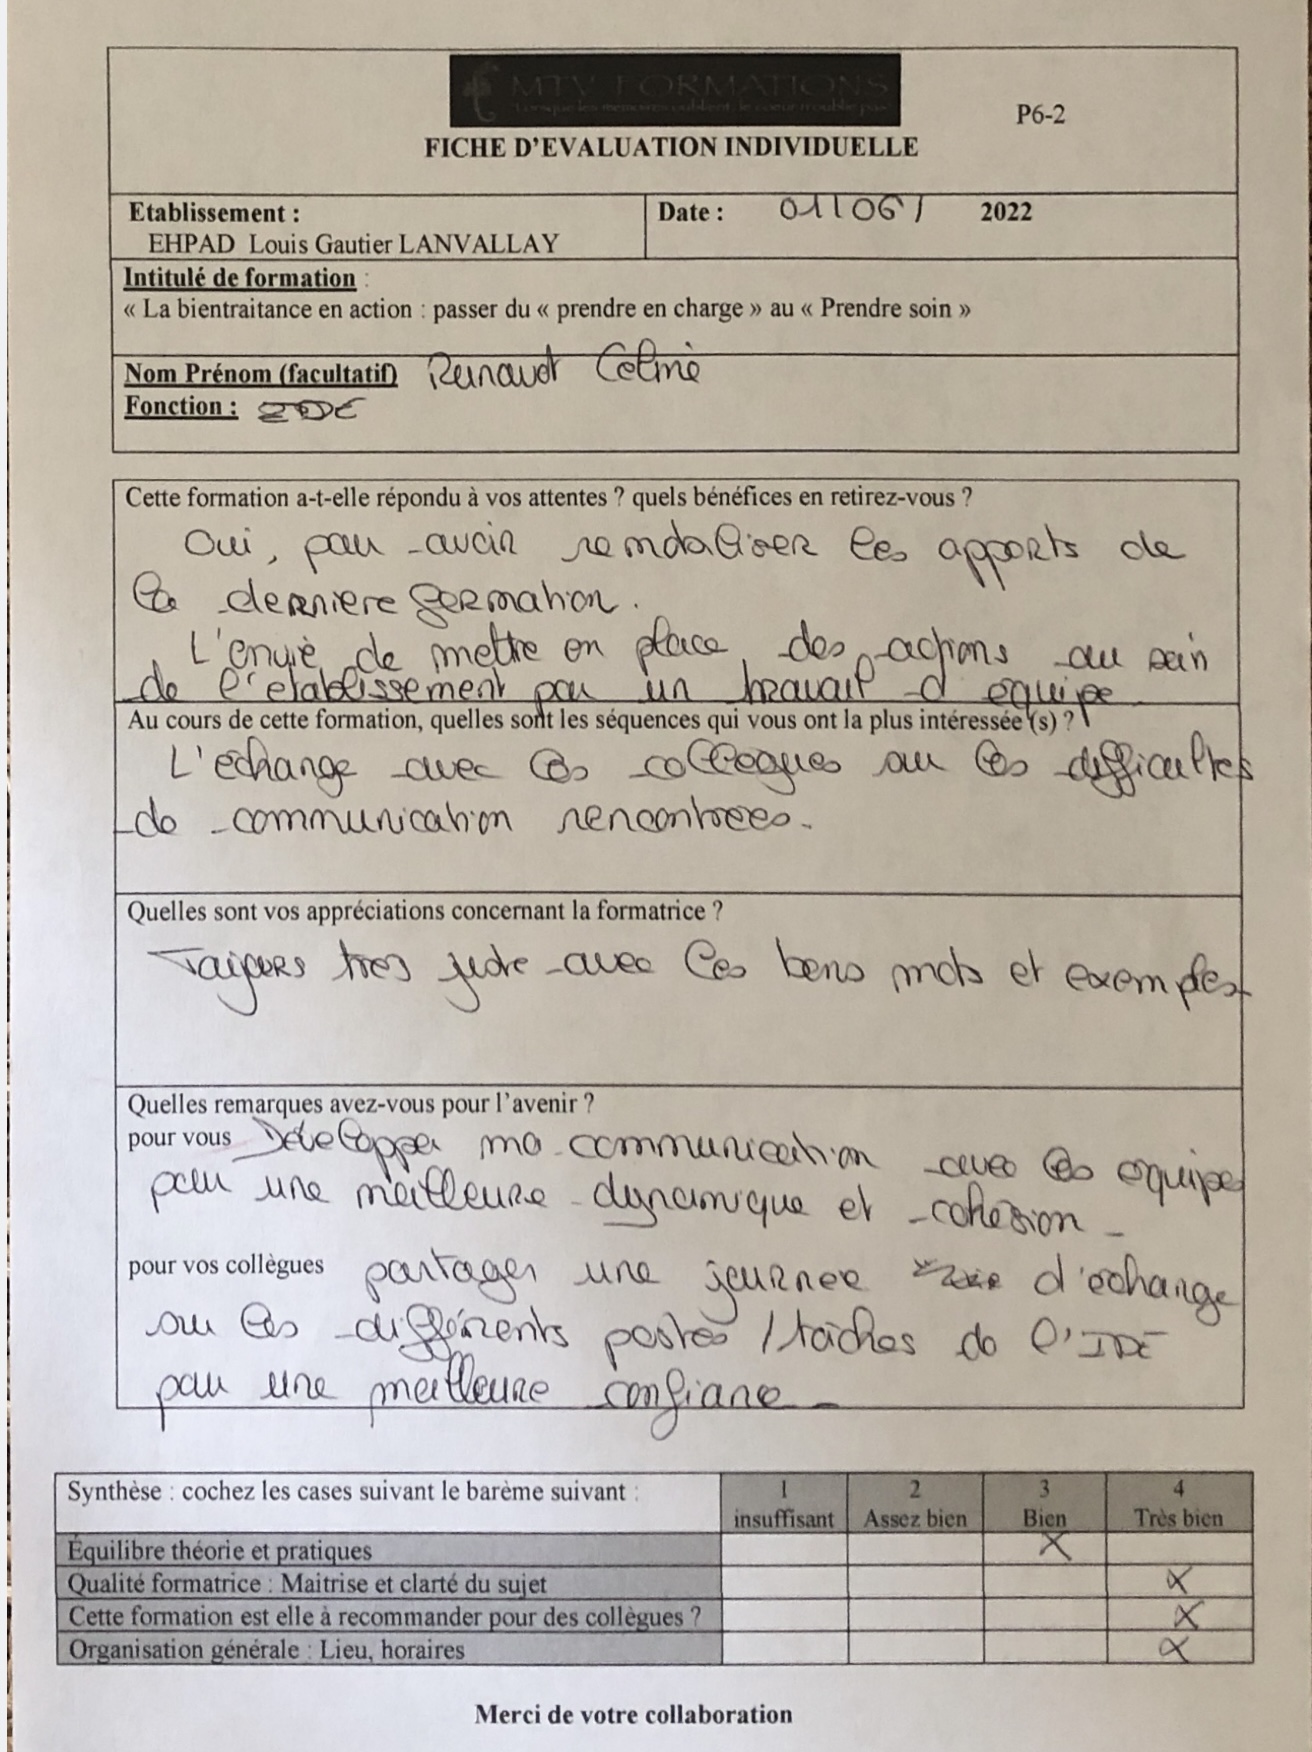 MTV FORMATIONS
P6-2
FICHE D'EVALUATION INDIVIDUELLE
Etablissement :
EHPAD Louis Gautier LANVALLAY
Date : 01/06/ 2022
Intitulé de formation :
« La bientraitance en action : passer du « prendre en charge » au « Prendre soin »
Nom Prénom (facultatif) Renault Celine
Fonction : IDE
Cette formation a-t-elle répondu à vos attentes ? quels bénéfices en retirez-vous ?
Oui, pour avoir les apports de
la derniere formation.
L'envie de mettre en place des actions au sein
de l'etablissement par un travail d'equipe
Au cours de cette formation, quelles sont les séquences qui vous ont la plus intéressée (s) ?
L'echange avec les collegues sur les difficultes
de communication rencontrees.
Quelles sont vos appréciations concernant la formatrice ?
Toujours tres juste avec les bons mots et exemples
Quelles remarques avez-vous pour l'avenir ?
pour vous Developper ma communication avec les equipes
pour une meilleure dynamique et cohesion
pour vos collègues partager une journee d'echange
sur les différents postes / taches de l'IDE
pour une meilleure confiance
Synthèse : cochez les cases suivant le barème suivant : 1 2 3 4
insuffisant Assez bien Bien Très bien
Équilibre théorie et pratiques X
Qualité formatrice : Maitrise et clarté du sujet X
Cette formation est elle à recommander pour des collègues ? X
Organisation générale : Lieu, horaires X
Merci de votre collaboration